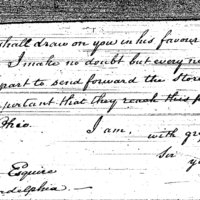 shall draw on you in his favour
I make no doubt but every ne
part to send forward the Store
portant that they reach this p
Ohio. I am. with gr
Sir yo
Esquire
adelphia.